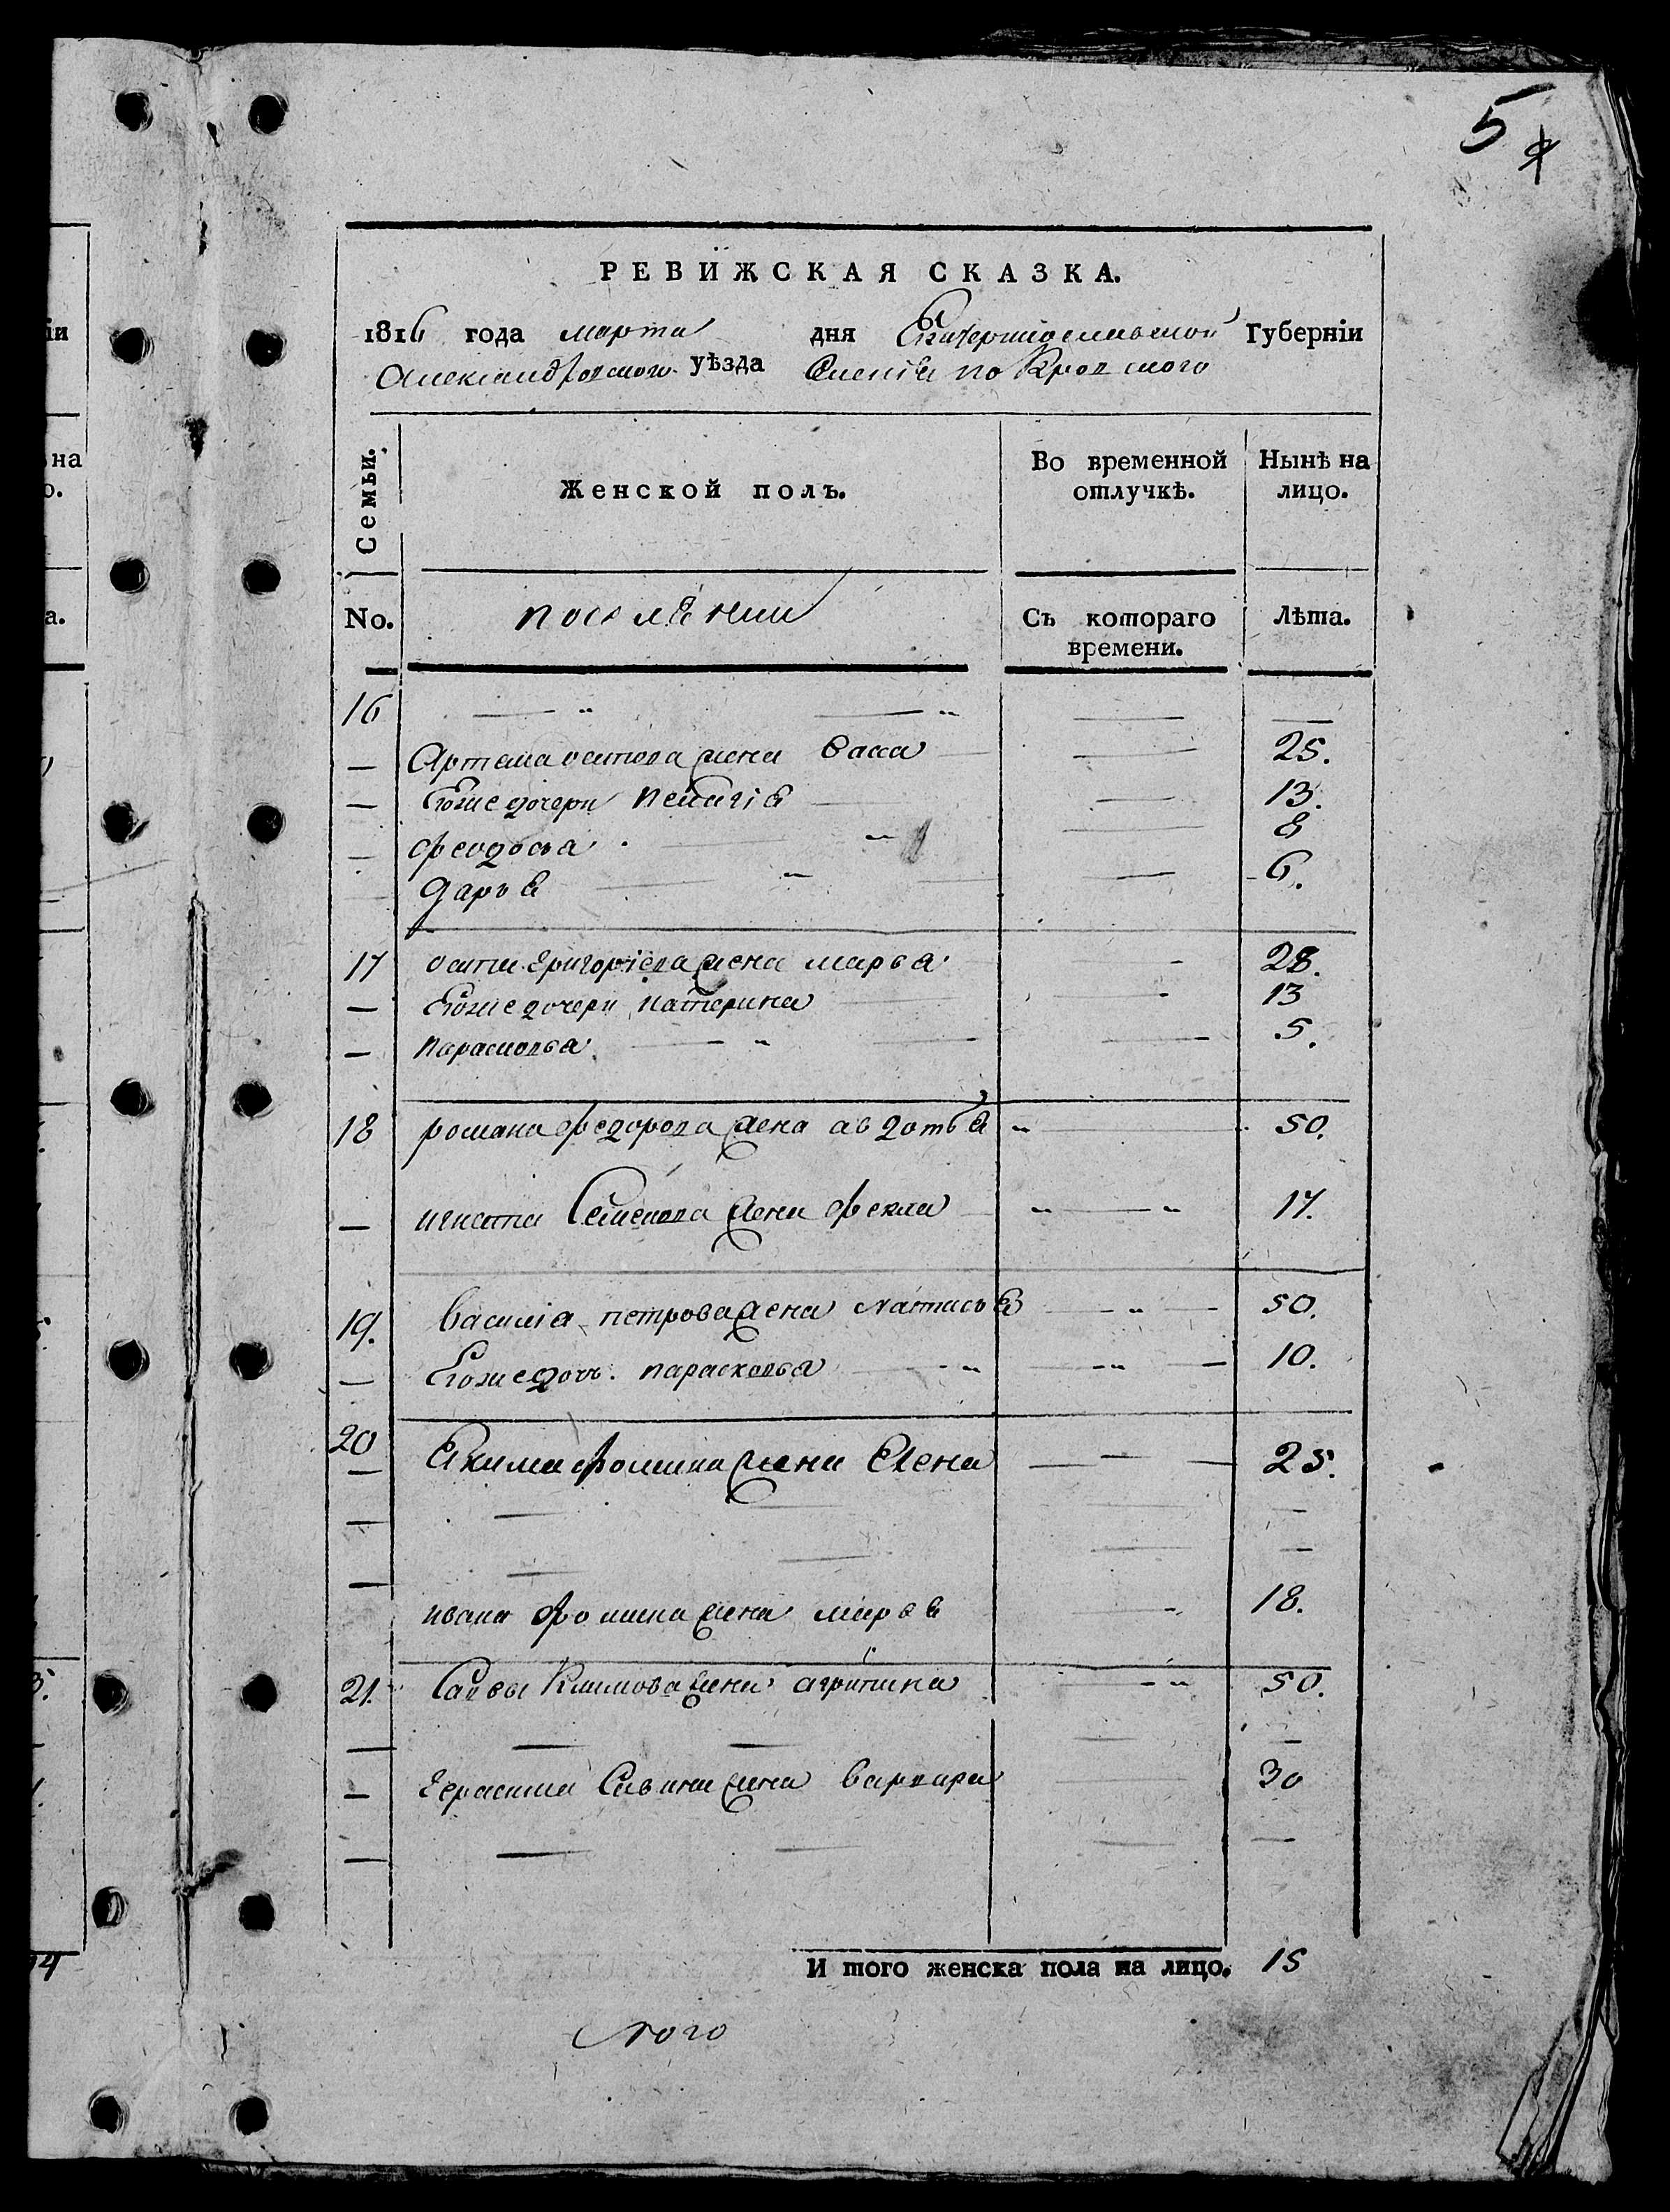 5
РЕВИЖСКАЯ СКАЗКА.
1816 года марта дня Екатеринославской Губерніи
Александровского уѣзда Селенія Покровского
Семьи.
Женской полъ.
Во временной отлучкѣ.
Нынѣ на лицо.
No.
поселяни
Съ котораго времени.
Лѣта.
16
— Артема осипова жена васа 25.
— Егоже дочери пелагія 13.
— феодосья 8
дарья 6.
17 осипа григоріева жена марья 28.
— Егоже дочери катерина 13
— парасковья 5.
18 романа федорова жена авдотья 50.
— игната Семенова жена фекла 17.
19. василія петрова жена наталья 50.
— Егоже дочь. парасковья 10.
20 Якима фомина жена Елена 25.
ивана фомина жена марья 18.
21. Саввы Климова жена агрипина 50.
— герасима Савина жена варвара 30
И того женска пола на лицо. 15
ного
іи
на
о.
а.